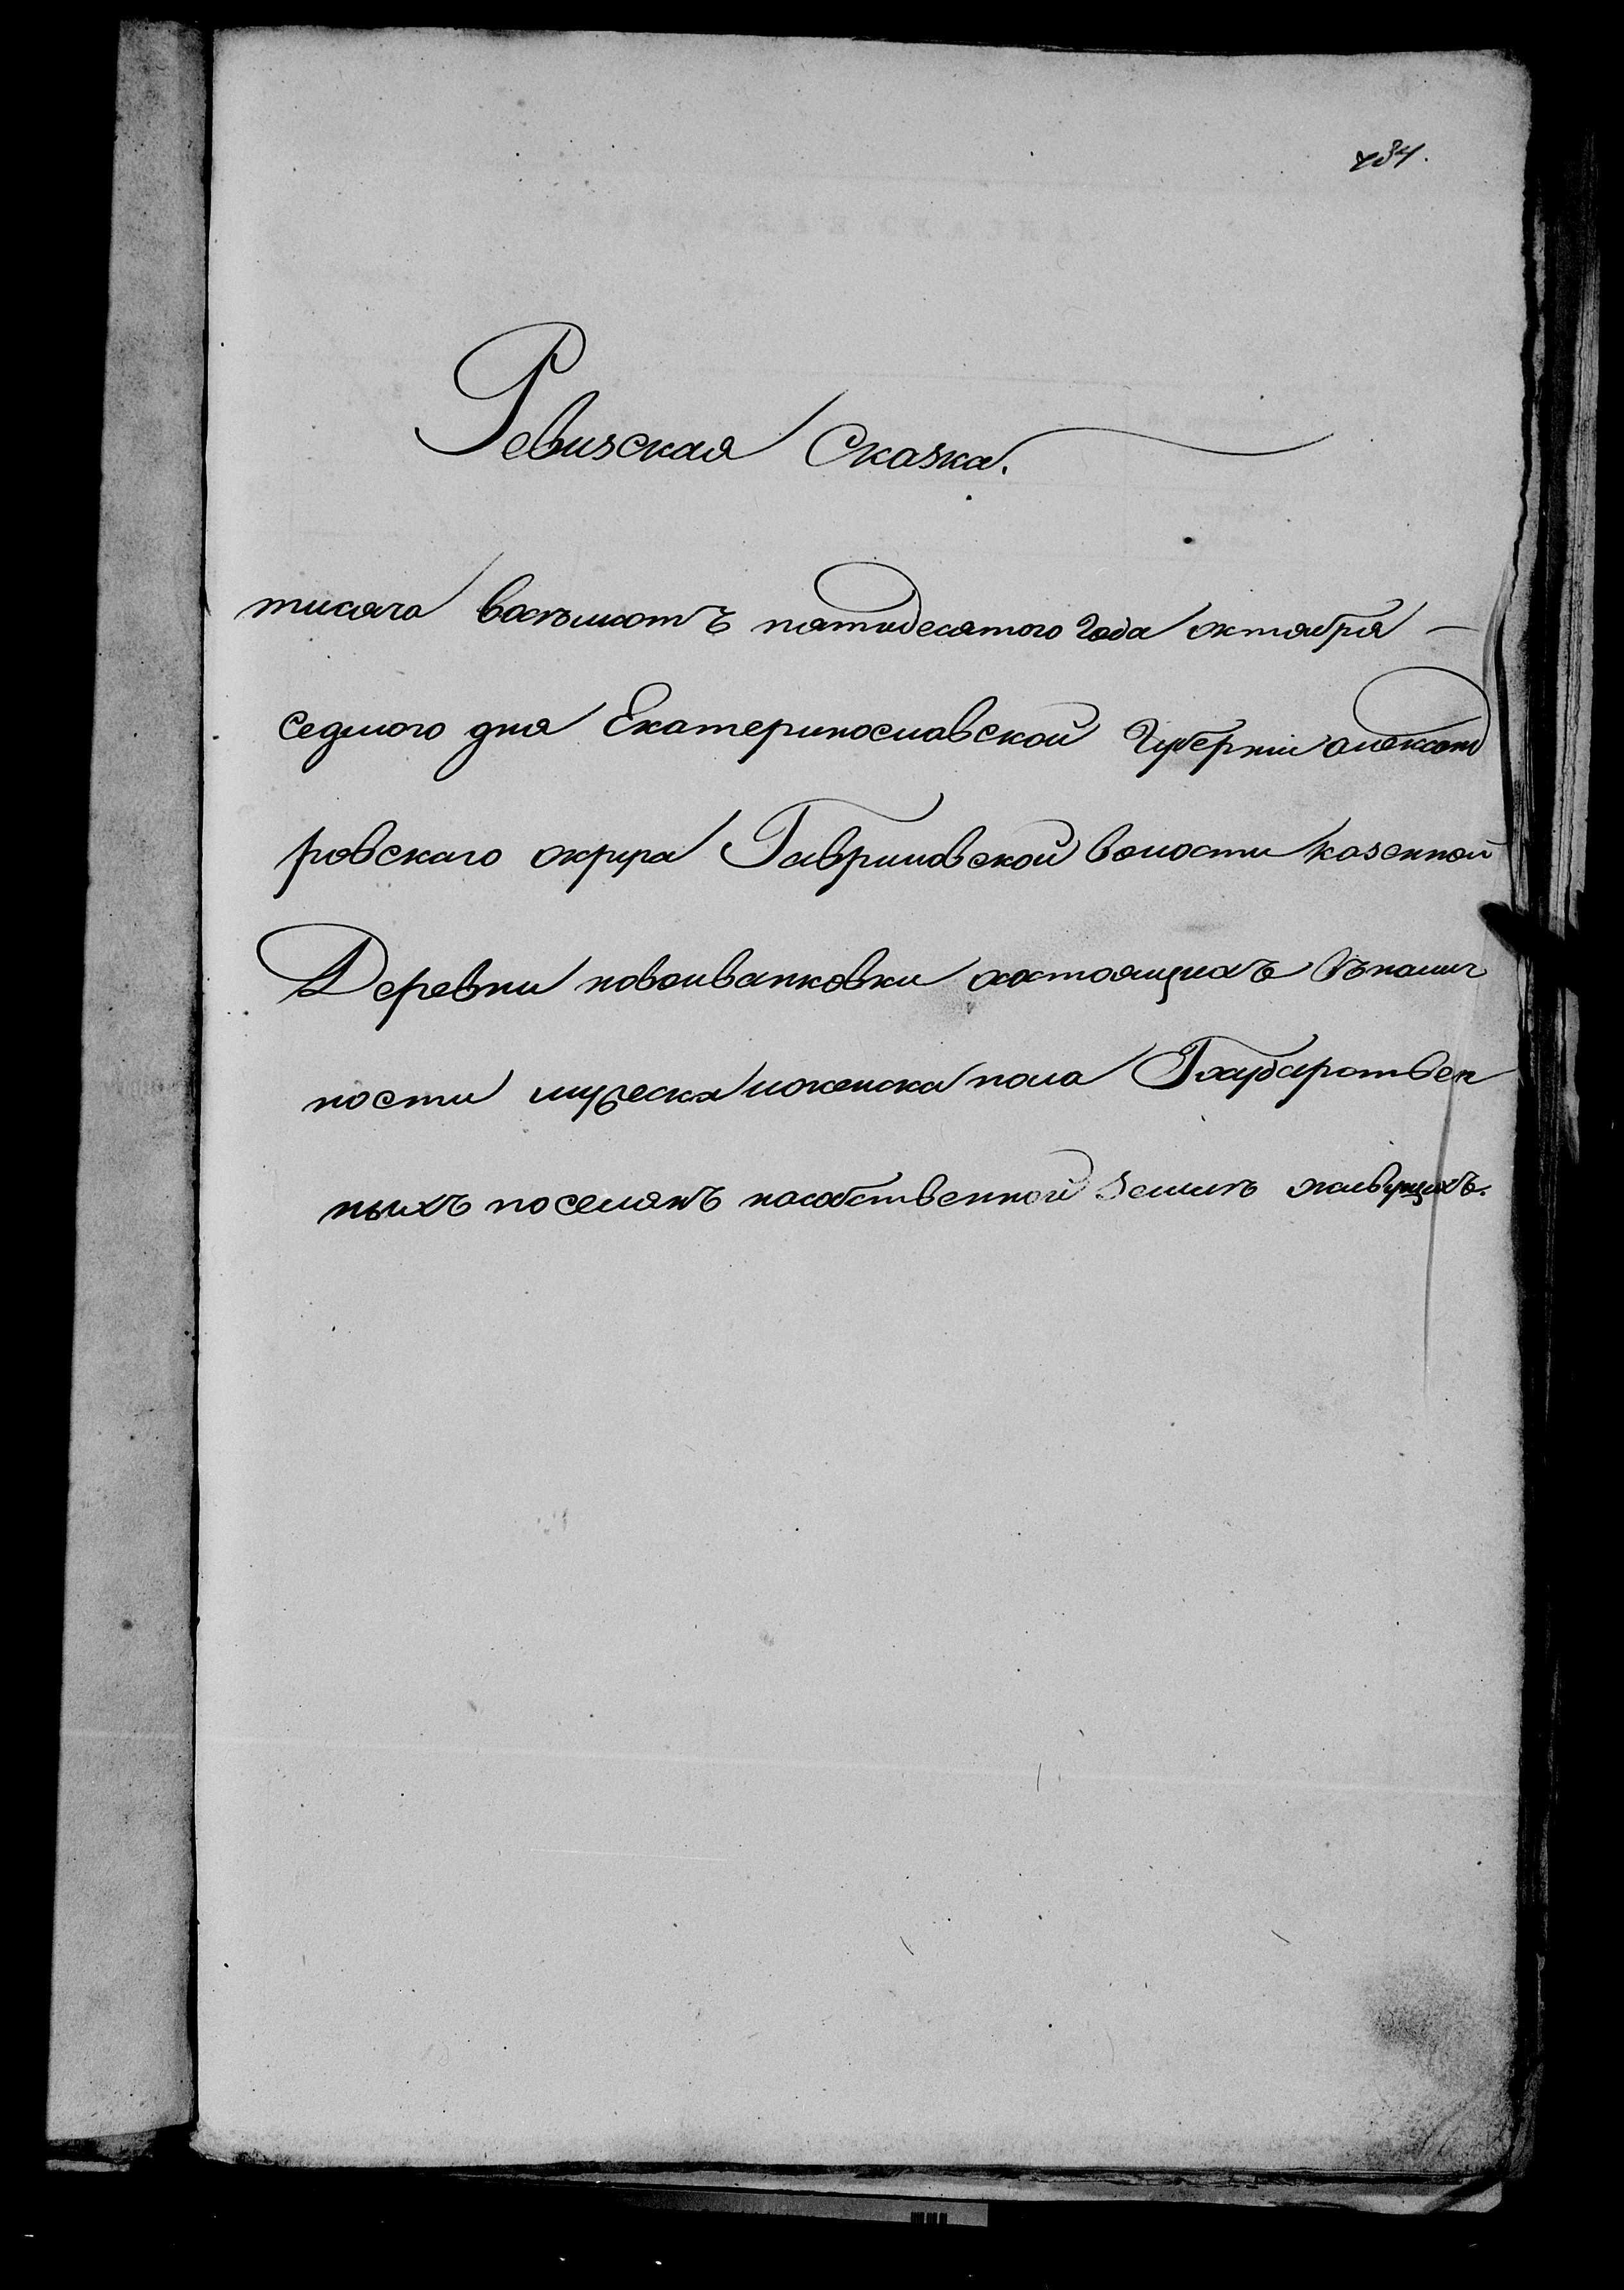 434.
Ревизская Сказка.
тисяча восемьсотъ пятидесятого года октября —
седмого дня Екатеринославской Губерніи александ
ровскаго округа Гавриловской волости казенной
Деревни новоиванковки состоящихъ въ налич
ности мужеска и женска пола Государствен
ныхъ поселянъ на собственной земли живущихъ.